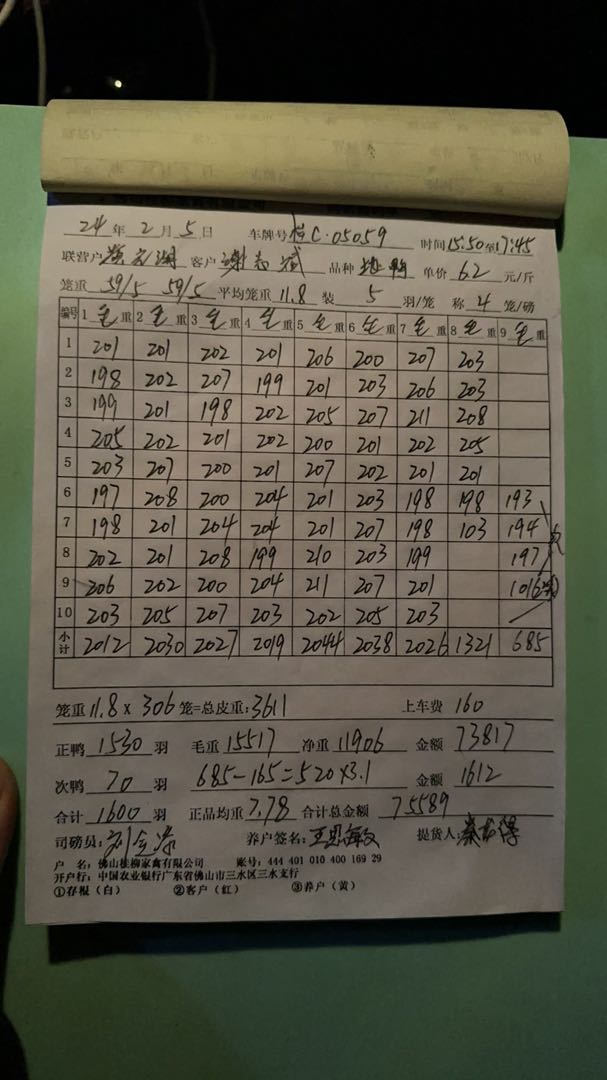 24年2月5日 车牌号桂C·05059 时间15:50至17:45
联营户 客户谢志斌 品种 单价6.2元/斤
笼重59/5 59/5 平均笼重11.8 装5羽/笼 称4笼/磅
编号 1毛重 2毛重 3毛重 4毛重 5毛重 6毛重 7毛重 8毛重 9毛重
1 201 201 202 201 206 200 207 203
2 198 202 207 199 201 203 206 203
3 199 201 198 202 205 207 211 208
4 205 202 201 202 200 201 202 205
5 203 207 200 201 207 202 201 201
6 197 208 200 204 201 203 198 198 193
7 198 201 204 204 201 207 198 103 194
8 202 201 208 199 210 203 199 197
9 206 202 200 204 211 207 201
10 203 205 207 203 202 205 203
小计 2012 2030 2027 2019 2044 2038 2026 1321 685
笼重11.8×306笼=总皮重:3611 上车费160
正鸭1530羽 毛重15517 净重11906 金额73817
次鸭70羽 685-165=520×3.1 金额1612
合计1600羽 正品均重7.78 合计总金额75589
司磅员: 养户签名: 提货人:
户 名:佛山桂柳家禽有限公司 账号:444 401 010 400 169 29
开户行:中国农业银行广东省佛山市三水区三水支行
①存根(白) ②客户(红) ③养户(黄)